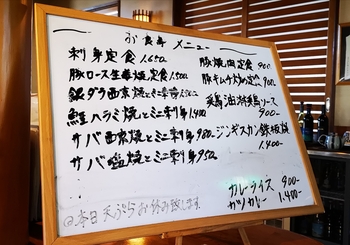 お食事 メニュー
刺身定食 1,650
豚ロース生姜焼定食 1,500
銀ダラ西京焼とミニ刺身
鮭ハラミ焼とミニ刺身 1,400
サバ西京焼とミニ刺身 980-
サバ塩焼とミニ刺身 950-
豚焼肉定食 900-
豚キムチ炒め定食 900-
900-
ジンギスカン鉄板焼
1,400-
カレーライス 900-
カツカレー 1,400-
本日 天ぷら お休み致します